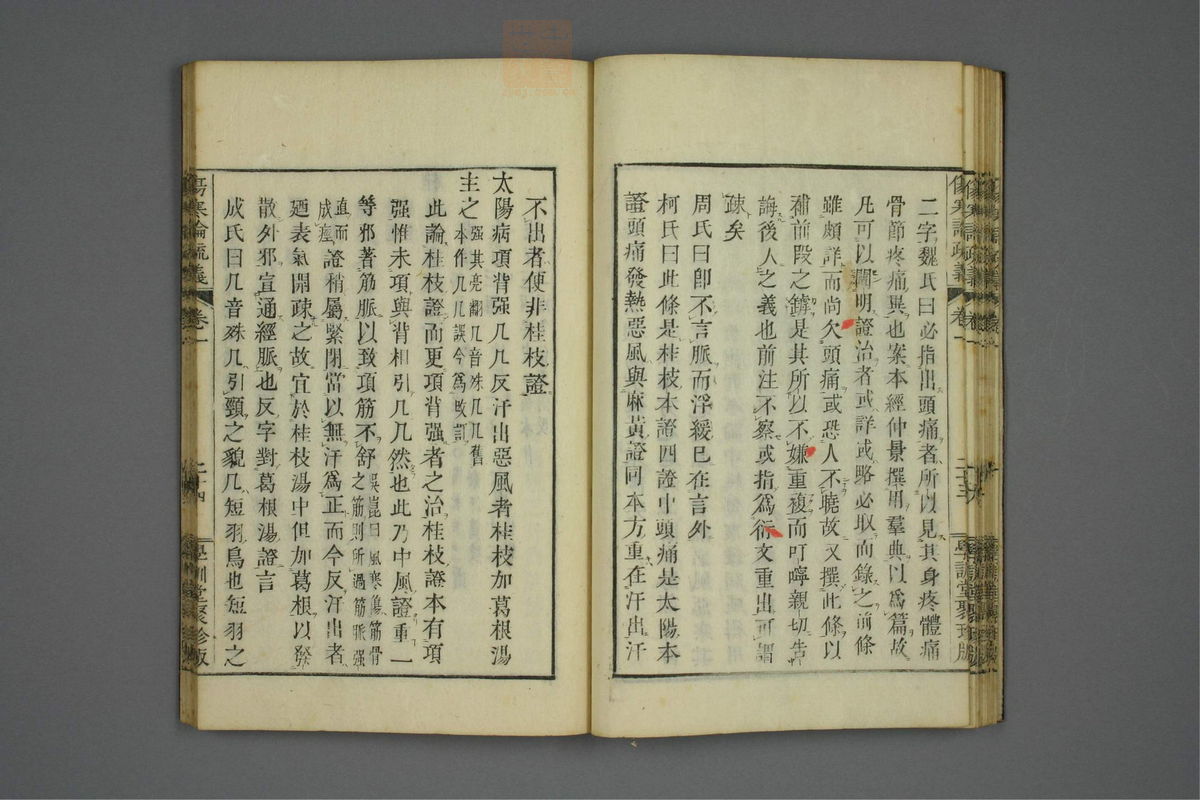 二字魏氏曰必指出頭痛者所以見其身疼體痛
骨節疼痛異也案本經仲景撰用羣典以爲篇故
凡可以闡明證治者或詳或略必取而錄之前條
雖頗詳而尚欠頭痛或恐人不曉故又撰此條以
補前段之罅是其所以不嫌重複而叮嚀親切告
誨後人之義也前注不察或指爲衍文重出可謂
疎矣
周氏曰卽不言脈而浮緩已在言外
柯氏曰此條是桂枝本證四證中頭痛是太陽本
證頭痛發熱惡風與麻黃證同本方重在汗出汗
傷寒論疏義
卷一
二十三
學訓堂聚珍版
不出者便非桂枝證
太陽病項背强几几反汗出惡風者桂枝加葛根湯
主之强其亮翻几音殊几几舊
本作几几誤今爲改訂
此論桂枝證而更項背强者之治桂枝證本有項
强惟未項與背相引几几然也此乃中風證重一
等邪著筋脈以致項筋不舒吳崑曰風寒傷筋骨
之筋則所過筋脈强
直而
成痙證稍屬緊閉當以無汗爲正而今反汗出者
廼表氣開疎之故宜於桂枝湯中但加葛根以發
散外邪宣通經脈也反字對葛根湯證言
成氏曰几音殊几引頸之貌几短羽鳥也短羽之
傷寒論疏義
卷一
二十四
學訓堂聚珍版